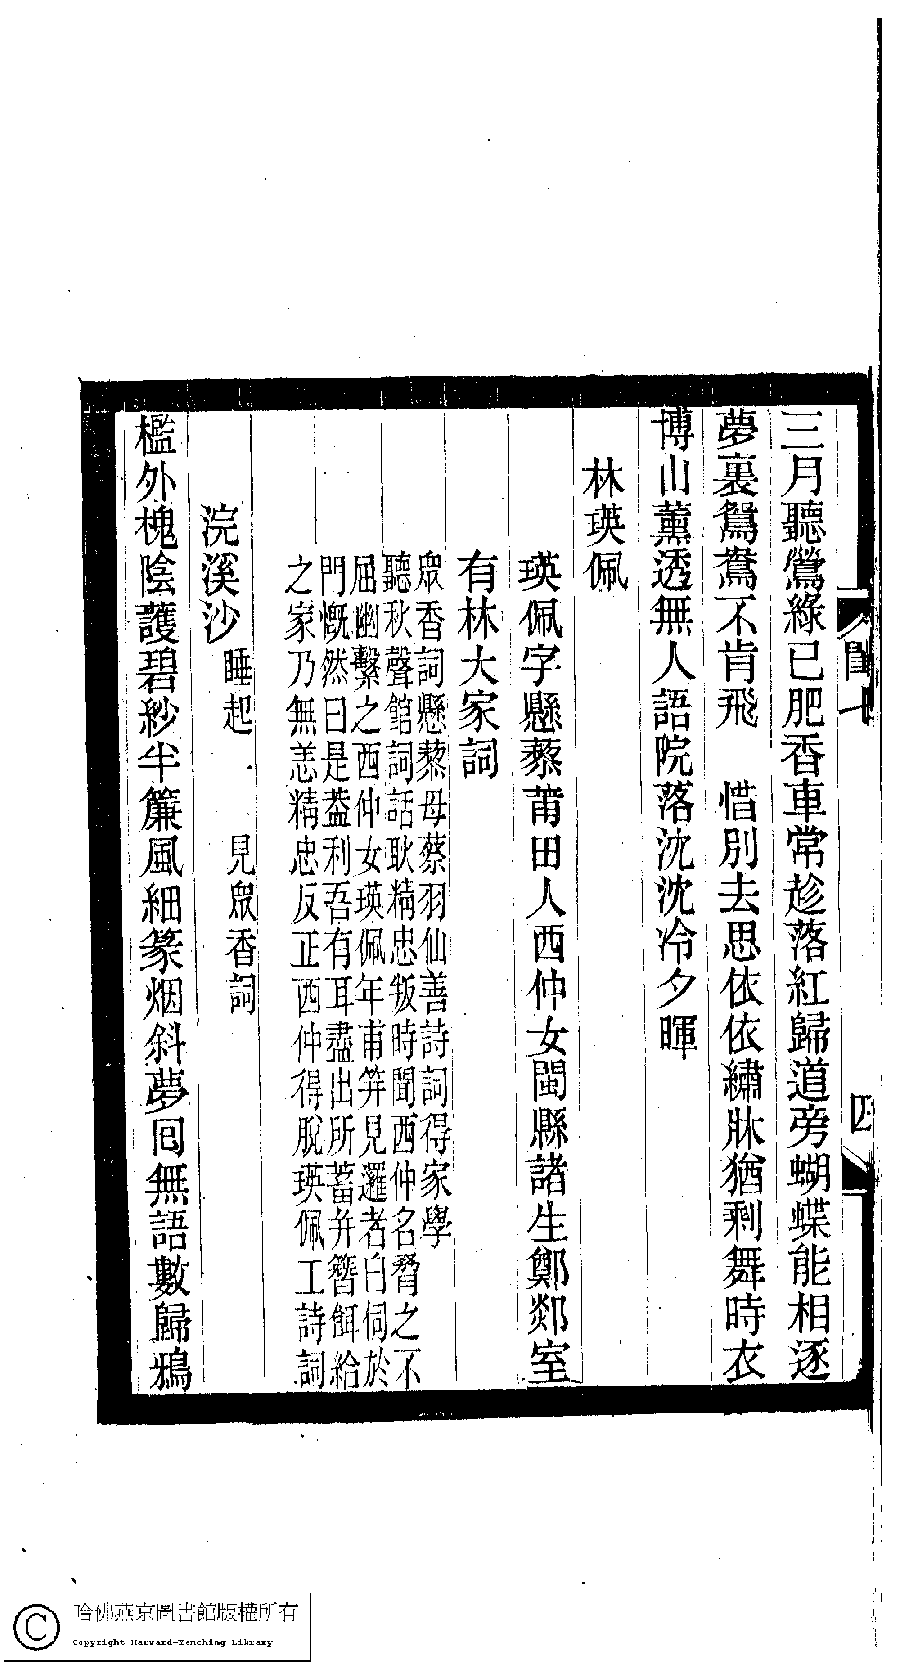 三月聽鶯綠已肥香車常趁落紅歸道旁蝴蝶能相逐
夢裏鴛鴦不肯飛　惜別去思依依繡牀猶剩舞時衣
博山薰透無人語院落沈沈冷夕暉
林瑛佩
瑛佩字懸藜莆田人西仲女閩縣諸生鄭郯室
有林大家詞
眾香詞懸藜母蔡羽仙善詩詞得家學
聽秋聲館詞話耿精忠叛時聞西仲名脅之不
屈幽繫之西仲女瑛佩年甫笄見邏者日伺於
門慨然曰是葢利吾有耳盡出所蓄并簪餌給
之家乃無恙精忠反正西仲得脫瑛佩工詩詞
浣溪沙　睡起　見眾香詞
檻外槐陰護碧紗半簾風細篆烟斜夢囘無語數歸鴉
四
哈佛燕京圖書館版權所有
Copyright Harvard-Yenching Library